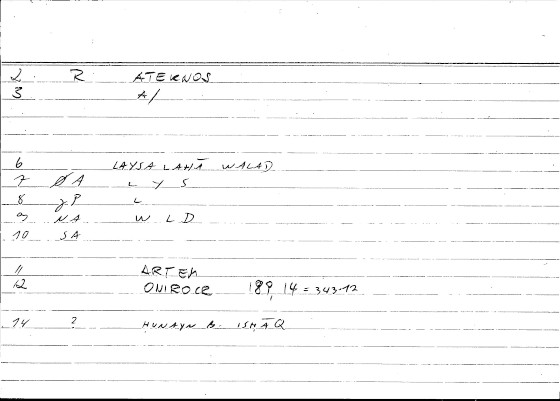 2 R ATEKNOS
3 A/
6 LAYSA LAHĀ WALAD
7 ØA L Y S
8 γP L
9 NA W L D
10 SA
11 ARTEM
12 ONIROCR 189, 14 = 343-12
14 ? HUNAYN B. ISḤĀQ